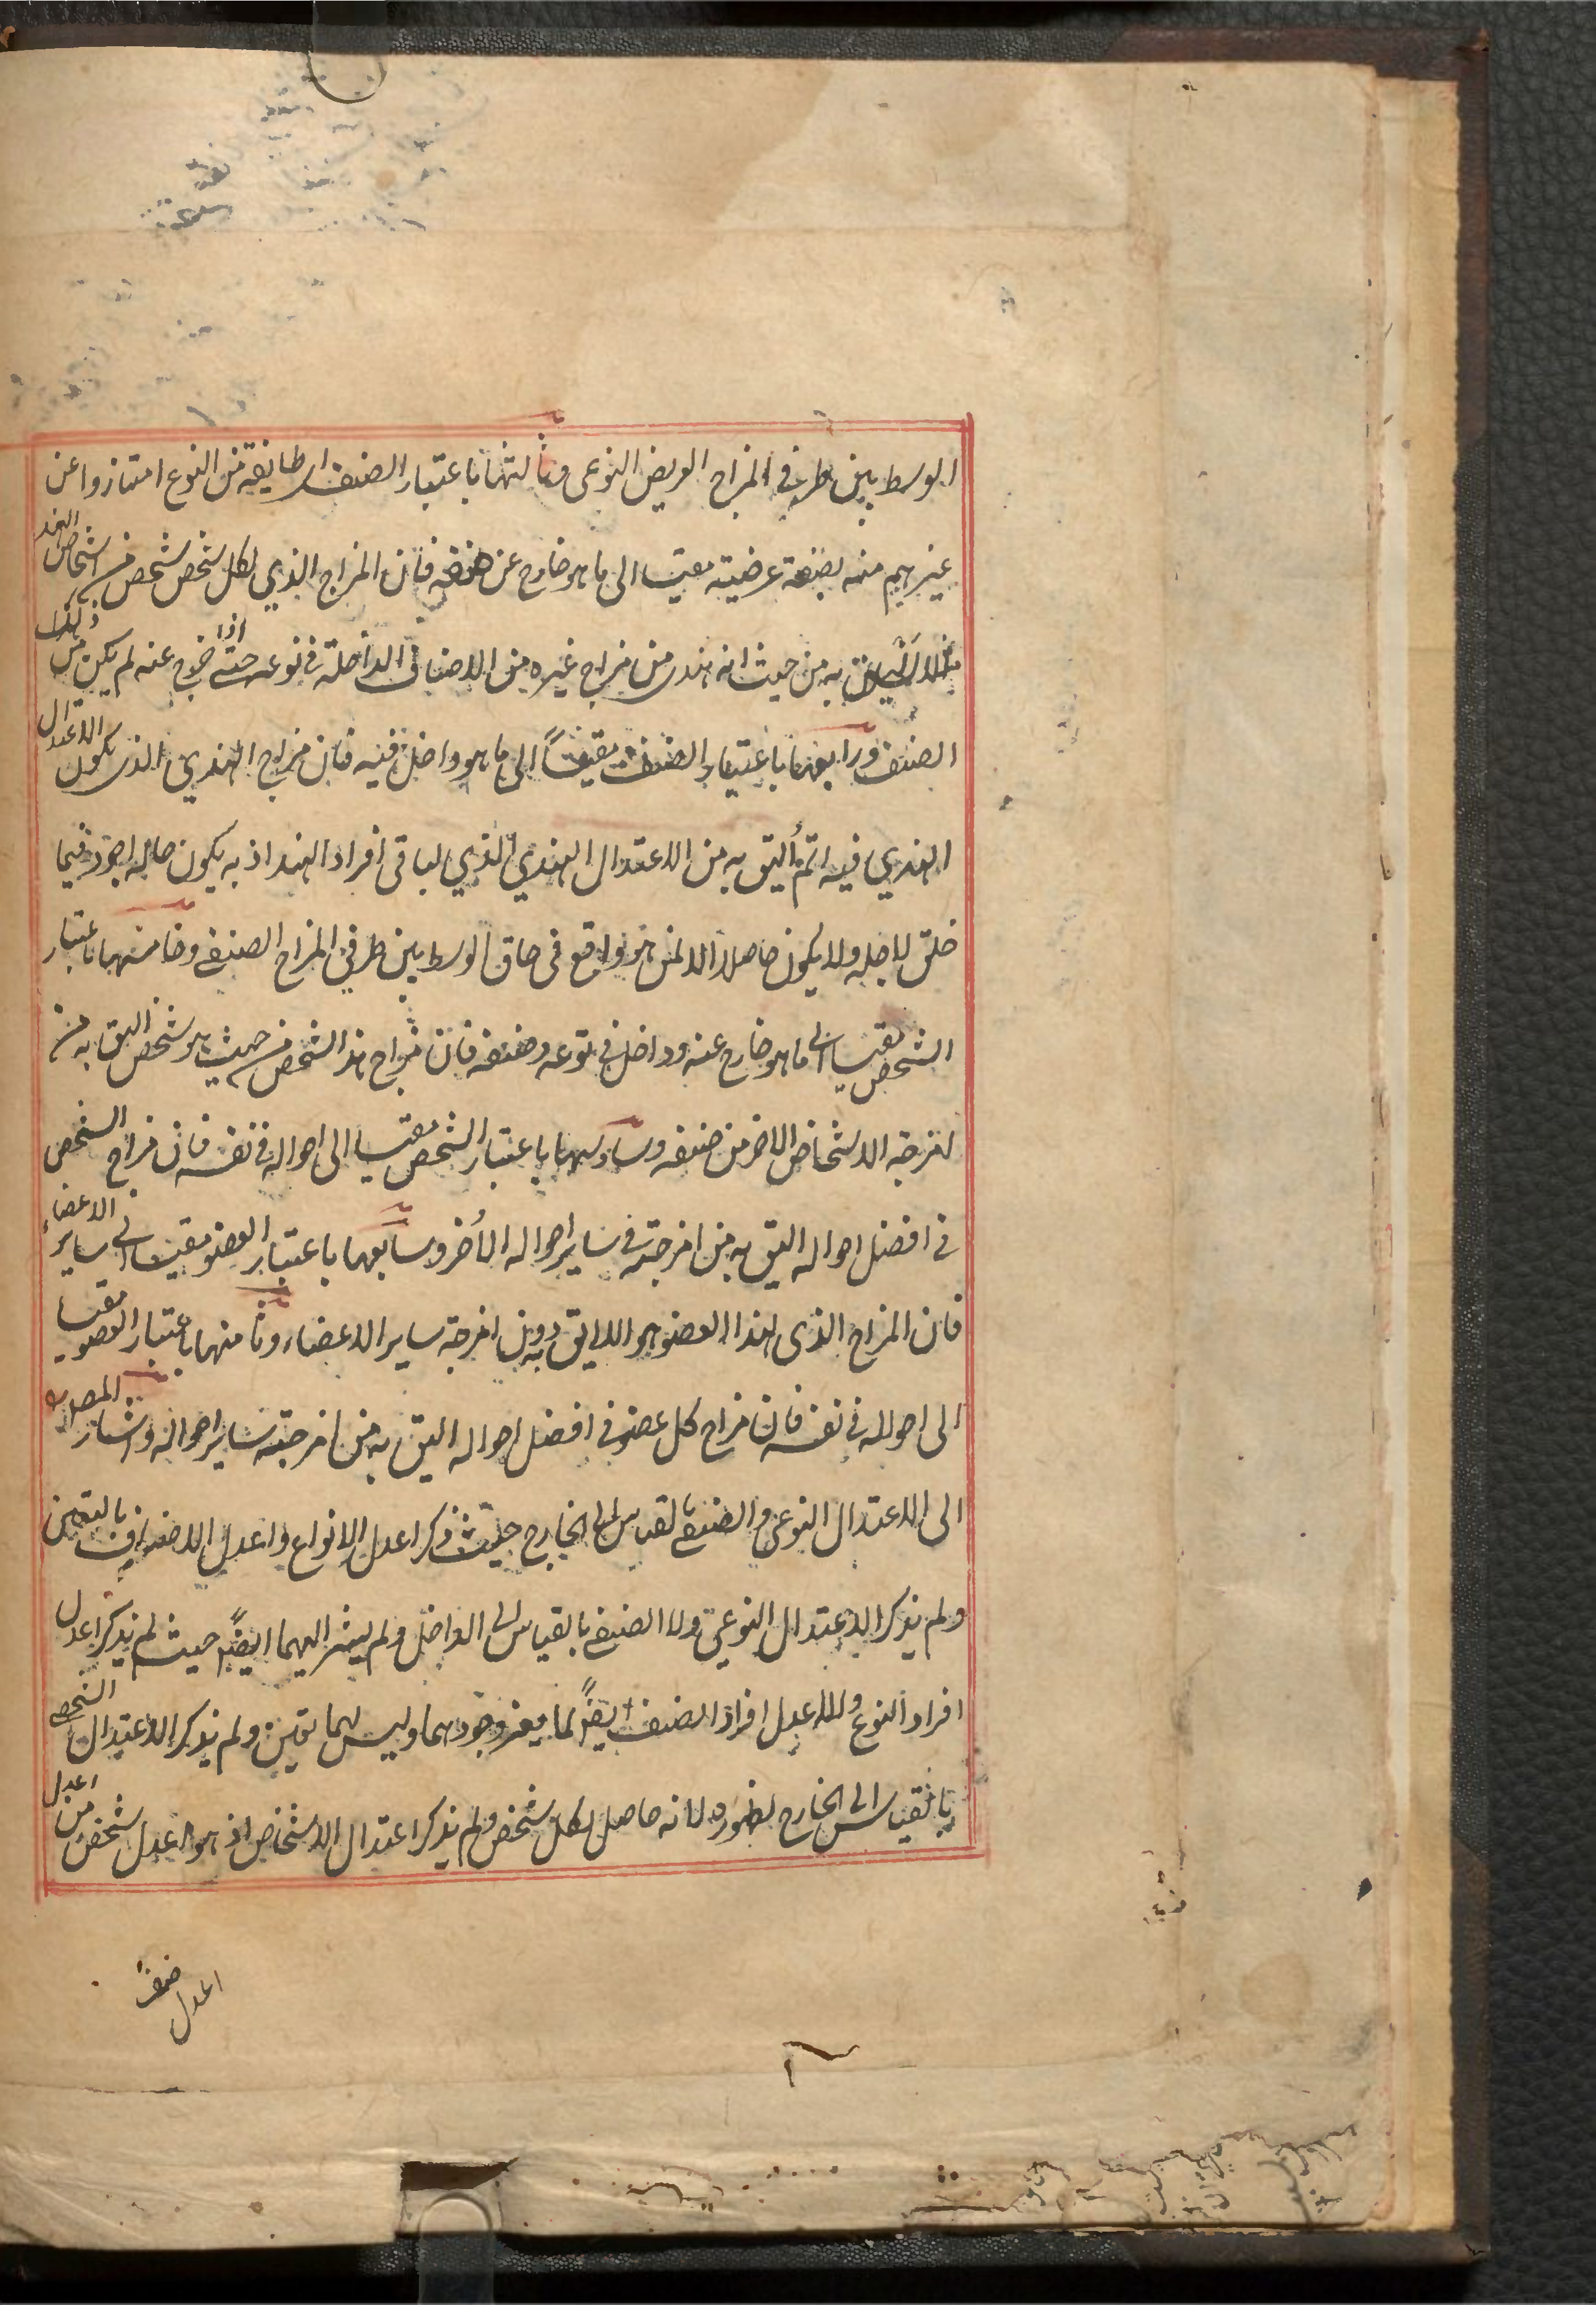 الوسط بين طرفي المزاج العريض النوعي وثالثها باعتبار الصنف اى طايفة من النوع امتازوا عن
غيرهم منه بصفة عرضية مقيسا الى ما هو خارج عن صنفه فان المزاج الذي لكل شخص شخص من اشخاص الهند
مثلا اليق به من حيث انه هندى من مزاج غيره من الاصناف الداخلة في نوعه حتى اذا خرج عنه لم يكن من ذلك
الصنف ورابعها باعتبار الصنف مقيساً الى ما هو داخل فيه فان مزاج الهندي الذى يكون الاعتدال
الهندي فيه اتم أليق به من الاعتدال الهندي الذي لباقى افراد الهند اذ به يكون حاله اجود فيما
خلق لاجله ولا يكون حاصلا الا لمن هو واقع فى حاق الوسط بين طرفي المزاج الصنفي وخامسها باعتبار
الشخص مقيسا الى ما هو خارج عنه وداخل في نوعه وصنفه فان مزاج هذا الشخص من حيث هو شخص اليق به من
امزجة الاشخاص الاخر من صنفه وسادسها باعتبار الشخص مقيسا الى احواله في نفسه فان مزاج الشخص
في افضل احواله اليق به من امزجته في ساير احواله الأخر وسابعها باعتبار العضو مقيسا الى ساير الاعضاء
فان المزاج الذى لهذا العضو هو اللايق به دون امزجة ساير الاعضاء وثامنها باعتبار العضو مقيسا
الى احواله في نفسه فان مزاج كل عضو في افضل احواله اليق به من امزجته ساير احواله واشار المص
الى الاعتدال النوعى والصنفي بالقياس الى الخارج حيث ذكر اعدل الانواع واعدل الاصناف بالتعيين
ولم يذكر الاعتدال النوعي ولا الصنفي بالقياس الى الداخل ولم يشر اليهما ايضاً حيث لم يذكر اعدل
افراد النوع ولا اعدل افراد الصنف ايضاً لما يعز وجودهما وليس لهما تعين ولم يذكر الاعتدال الشخصي
بالقياس الى الخارج لظهوره لانه حاصل لكل شخص ولم يذكر اعتدال الاشخاص اذ هو اعدل شخص من اعدل
اعدل صنف